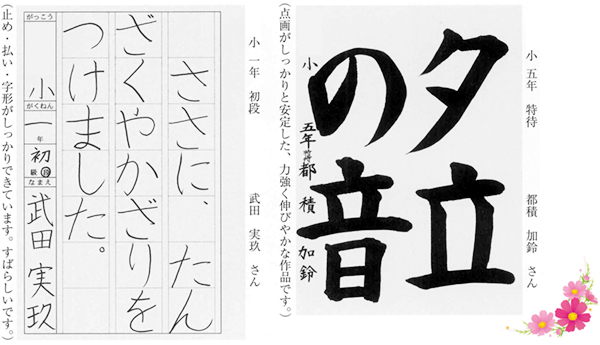 小 五年 特待 都積 加鈴 さん
夕立
の音
小 五年 特待 都積 加鈴
(点画がしっかりと安定した、力強く伸びやかな作品です。)
小 一年 初段 武田 実玖 さん
ささに、たん
ざくやかざりを
つけました。
がっこう 小 がくねん 一年 初 級 段 なまえ 武田 実玖
(止め・払い・字形がしっかりできています。すばらしいです。)